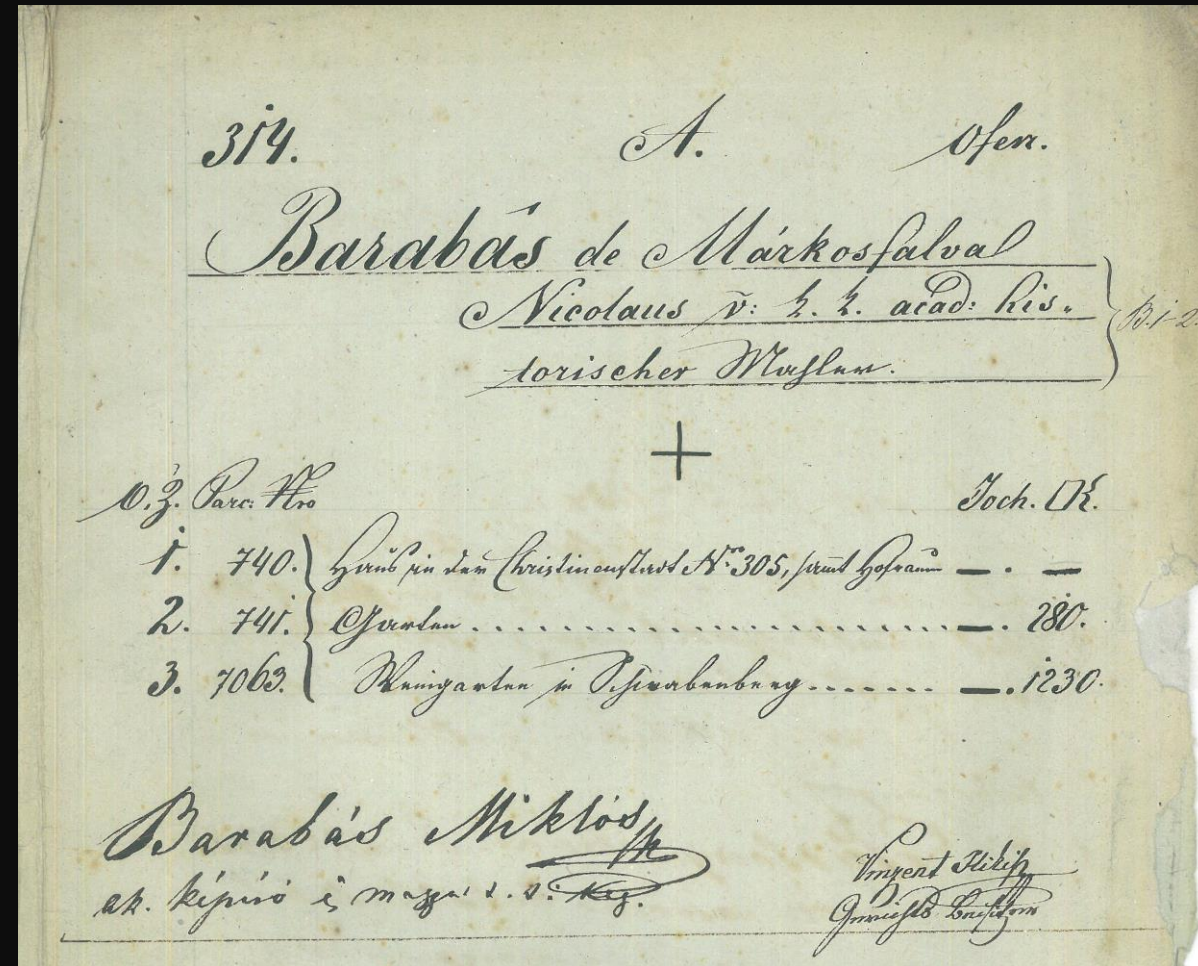 314. A. Ofen.
Barabás de Márkosfalva
Nicolaus v: k. k. acad: his-
torischer Mahler. B. 1-2
O. Z. Parc: Nro Joch. □K.
1. 740. Haus in der Christinenstadt Nro 305, sammt Hofraum — . —
2. 741. Garten . . . . . . . . . . — . 280.
3. 7063. Weingarten in Schwabenberg . . . . . . . — . 1230.
Barabás Miklós
ak. képíró
Vinzent
Gerichts Beisitzer